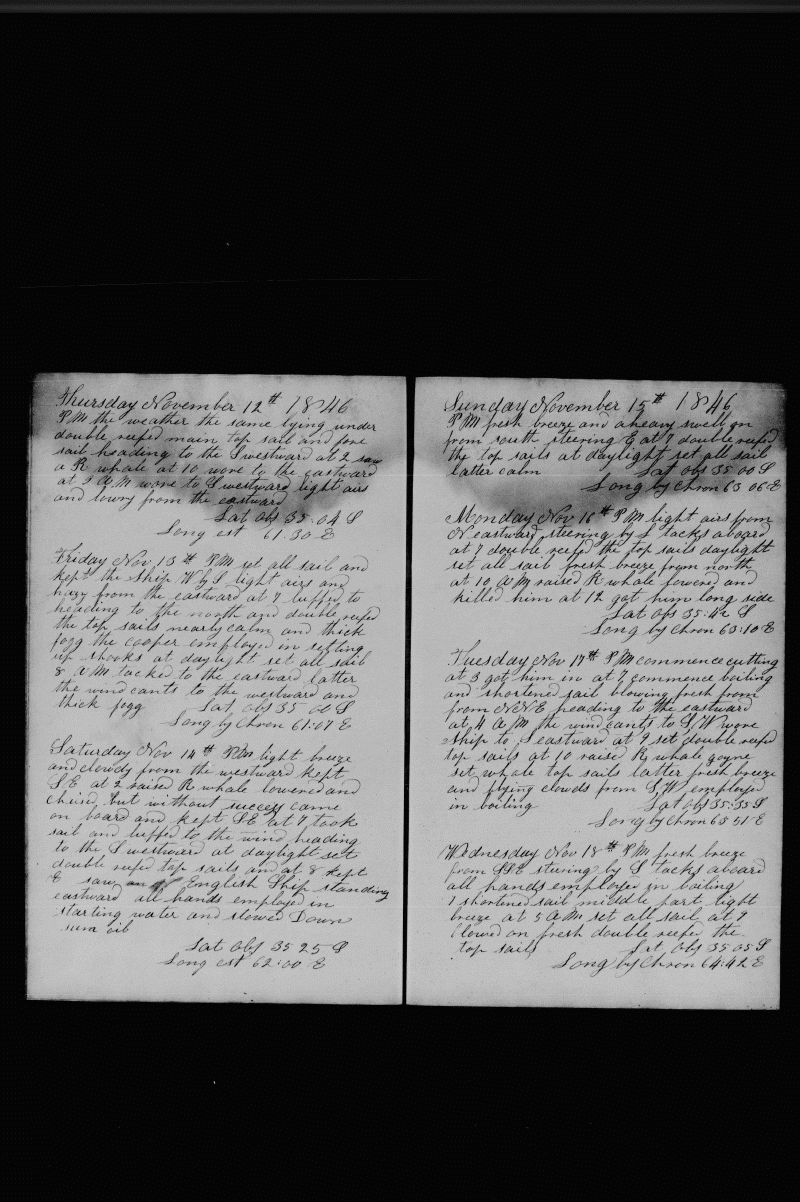 Thursday November 12th 1846
P M the weather the same lying under
double reefed main top sail and fore
sail heading to the S westward at 2 saw
a R whale at 10 wore to the eastward
at 3 A M wore to S westward light airs
and lowry from the eastward
Lat obs 35:04 S
Long est 61.30 E
Friday Nov 13th P M set all sail and
kept the Ship W by S light airs and
hazy from the eastward at 7 luffed to
heading to the north and double reefed
the top sails nearly calm and thick
fogg the cooper employed in setting
up shooks at daylight set all sail
8 A M tacked to the eastward latter
the wind cants to the westward and
thick fogg Lat. obs 35 00 S
Long by Chron 61:07 E
Saturday Nov 14th P M light breeze
and clowdy from the westward kept
S E at 2 raised R whale lowered and
chised but without success came
on board and kept S E at 7 took
sail and luffed to the wind heading
to the S westward at daylight set
double reefed top sails and at 8 kept
E saw an English Ship standing
eastward all hands employed in
starting water and stowed Down
sum oil
Lat obs 35 25 S
Long est 62:00 E
Sunday November 15th 1846
P M fresh breeze and a heavy swell on
from south steering E at 7 double reefed
the top sails at daylight set all sail
latter calm Lat obs 35 00 S
Long by Chron 63 06 E
Monday Nov 16th P M light airs from
N eastward steering by S tacks aboard
at 7 double reefd the top sails daylight
set all sail fresh breeze from north
at 10 A M raised R whale lowered and
killed him at 12 got him long side
Lat obs 35:42 S
Long by Chron 63:10 E
Tuesday Nov 17th P M commence cutting
at 3 got him in at 7 commence boiling
and shortened sail blowing fresh from
from N N E heading to the eastward
at 4 A M the wind cants to S W wore
Ship to S eastward at 9 set double reefd
top sails at 10 raised R whale goyne
set whole top sails latter fresh breeze
and flying clowds from S W employed
in boiling Lat obs 35:35 S
Long by Chron 63 51 E
Wednesday Nov 18th P M fresh breeze
from S S E stering by S tacks aboard
all hands employed in boiling
7 shortened sail middle part light
breeze at 5 A M set all sail at 9
blowed on fresh double reefed the
top sails Lat obs 35 05 S
Long by Chron 64:42 E